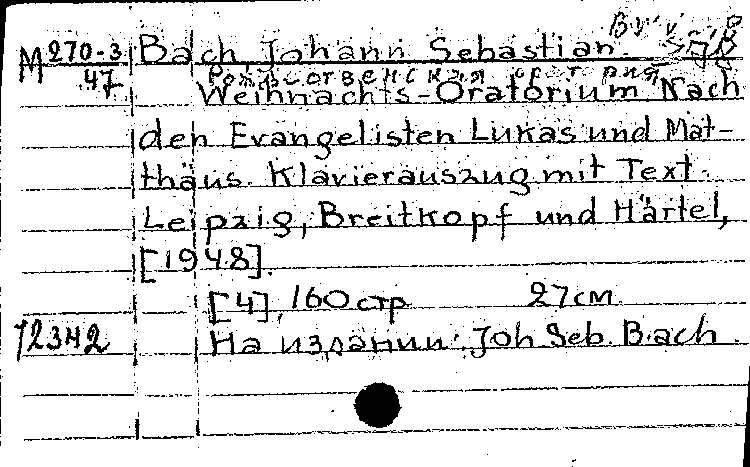 M 270-3/47 Bach Johann Sebastian.
Рождественская оратория
Weihnachts-Oratorium Nach
den Evangelisten Lukas und Mat-
thäus. Klavierauszug mit Text.
Leipzig, Breitkopf und Härtel,
[1948].
[4], 160 стр 27 см
72342 На издании: Joh Seb. Bach.